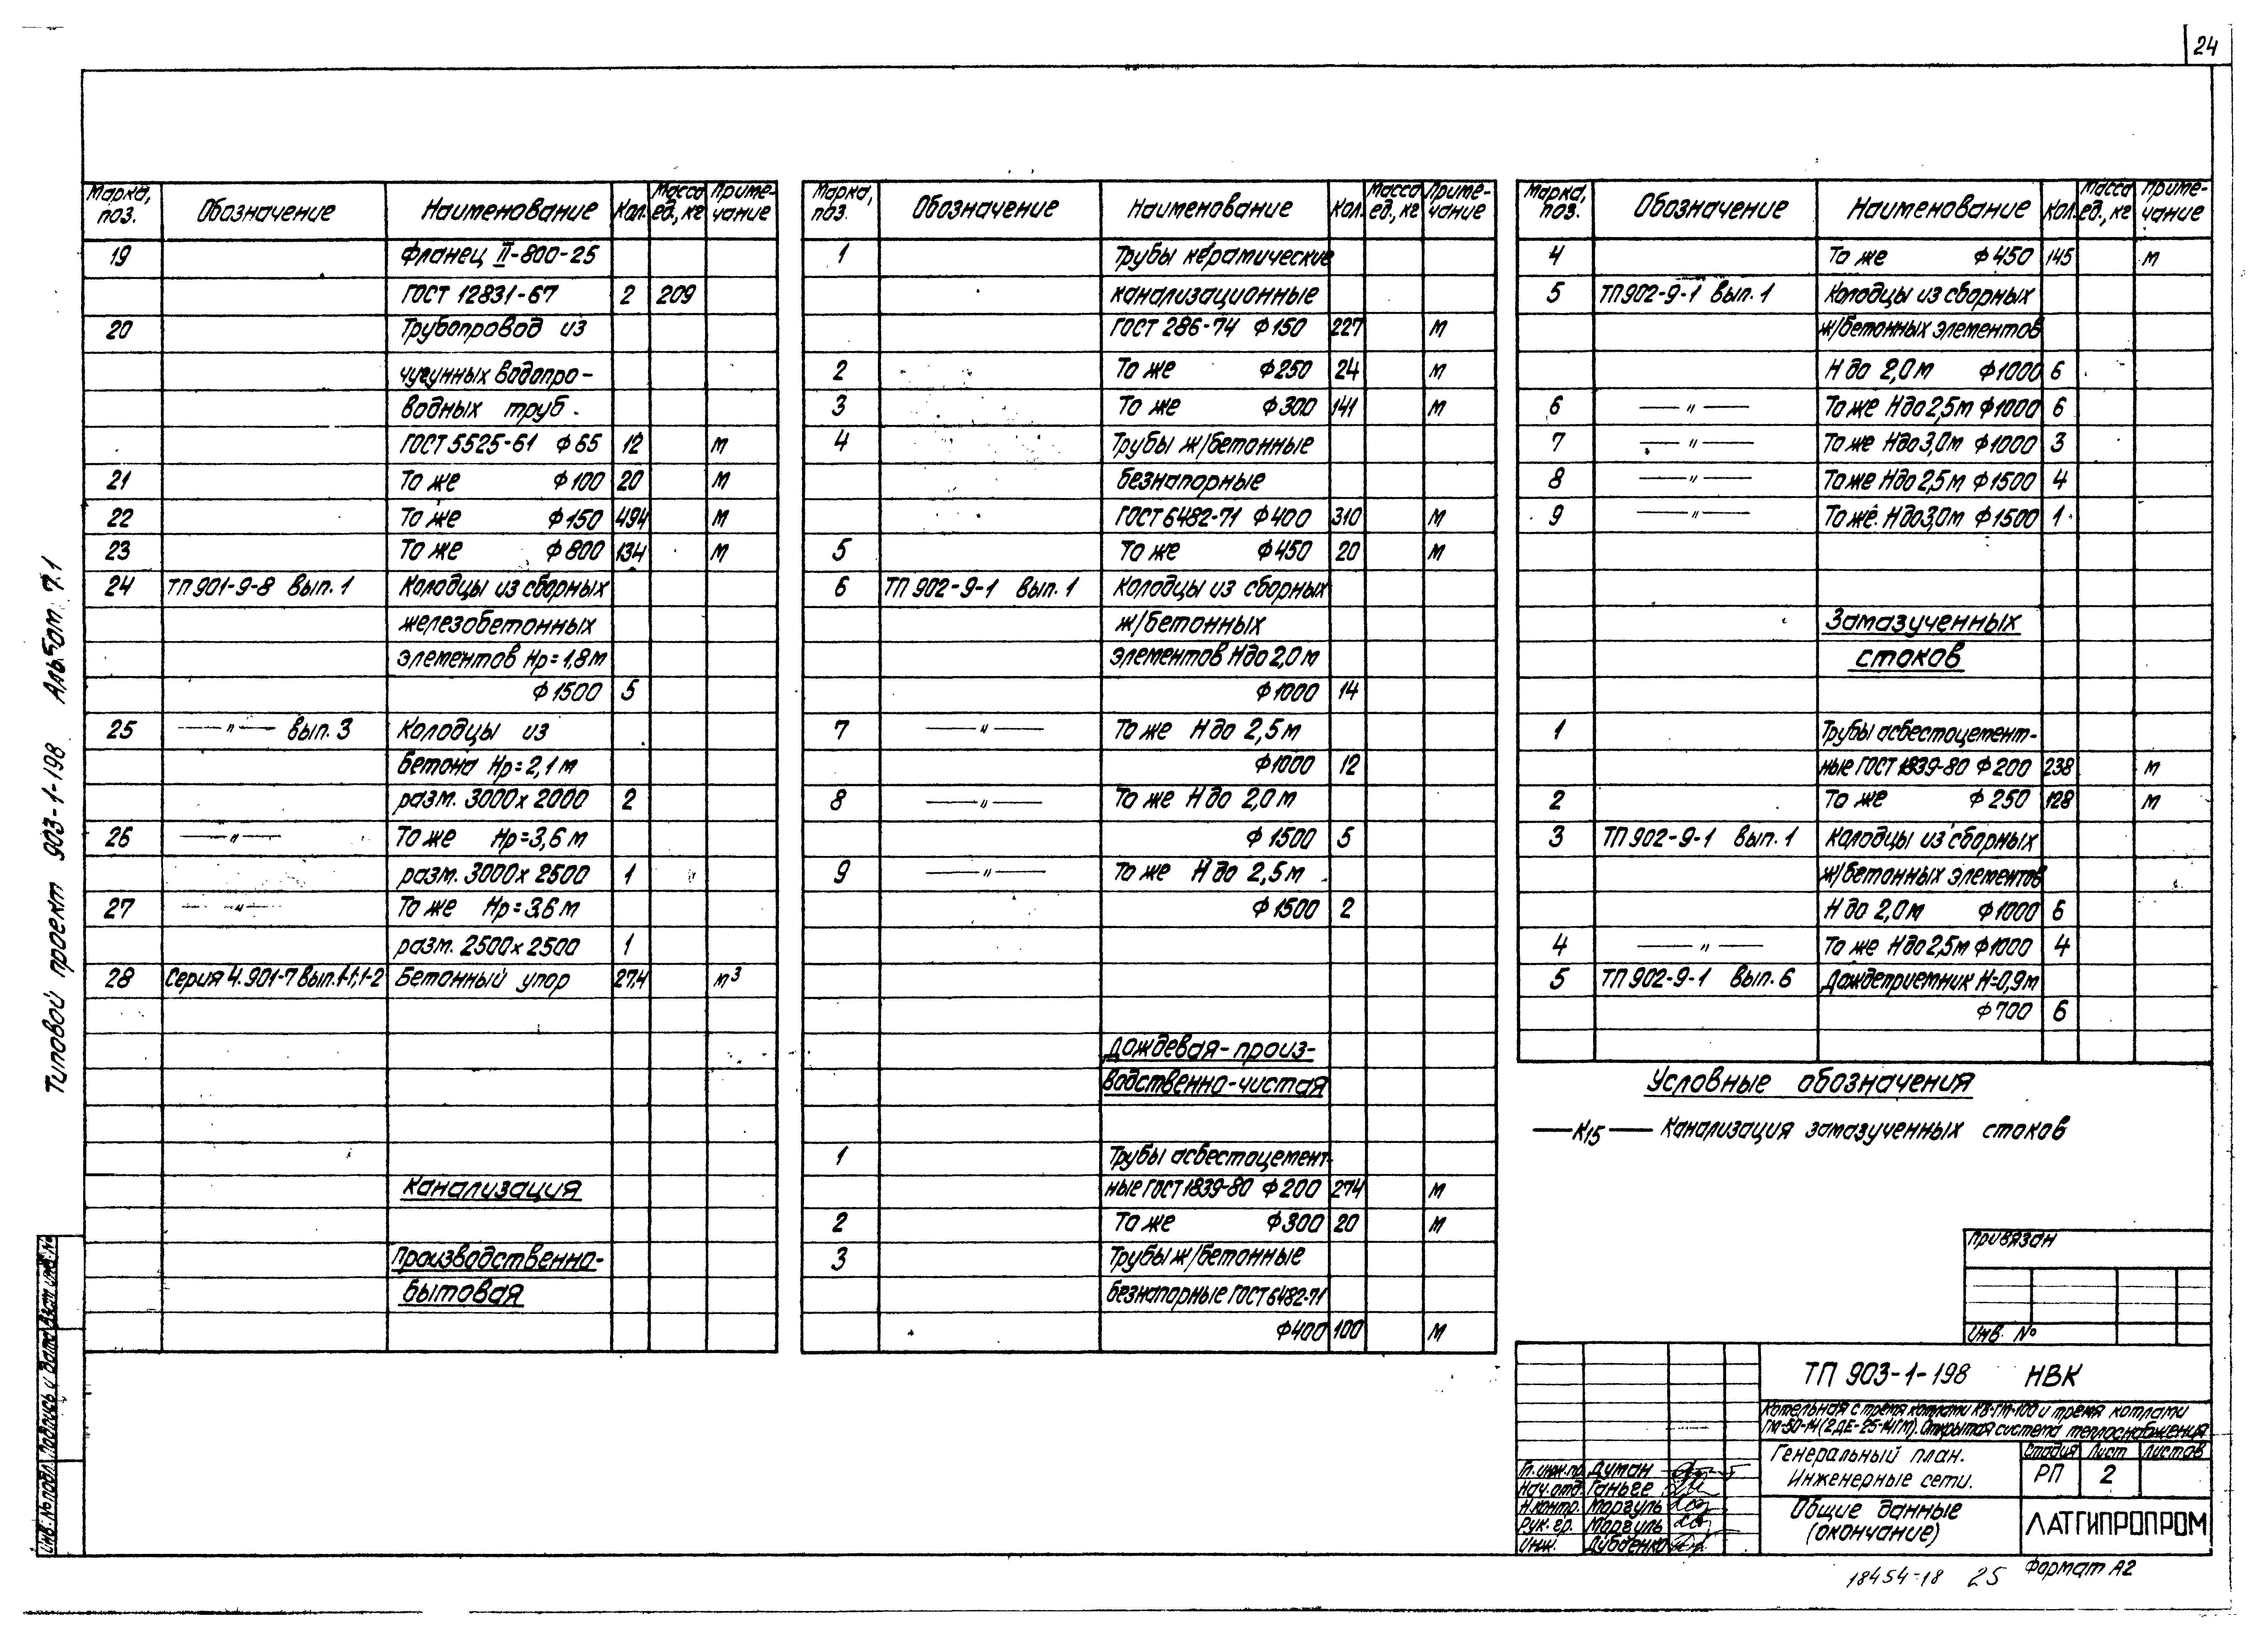 24
Марка, поз. Обозначение Наименование Кол. Масса ед., кг Приме-чание
19 Фланец II-800-25
ГОСТ 12831-67 2 209
20 Трубопровод из
чугунных водопро-
водных труб.
ГОСТ 5525-61 Ф65 12 м
21 То же Ф100 20 м
22 То же Ф150 494 м
23 То же Ф800 134 м
24 ТП 901-9-8 Вып. 1 Колодцы из сборных
железобетонных
элементов Нр=1,8м
Ф1500 5
25 —"— вып. 3 Колодцы из
бетона Нр=2,1м
разм. 3000х2000 2
26 —"— То же Нр=3,6м
разм. 3000х2500 1
27 —"— То же Нр=3,6м
разм. 2500х2500 1
28 Серия 4.901-7 вып. 1-1; 1-2 Бетонный упор 27,4 м³
Канализация
Производственно-
бытовая
Марка, поз. Обозначение Наименование Кол. Масса ед., кг Приме-чание
1 Трубы керамические
канализационные
ГОСТ 286-74 Ф150 227 м
2 То же Ф250 24 м
3 То же Ф300 141 м
4 Трубы ж/бетонные
безнапорные
ГОСТ 6482-71 Ф400 310 м
5 То же Ф450 20 м
6 ТП 902-9-1 Вып. 1 Колодцы из сборных
ж/бетонных
элементов Н до 2,0м
Ф1000 14
7 —"— То же Н до 2,5м
Ф1000 12
8 —"— То же Н до 2,0м
Ф1500 5
9 —"— То же Н до 2,5м
Ф1500 2
Дождевая-произ-
водственно-чистая
1 Трубы асбестоцемент-
ные ГОСТ 1839-80 Ф200 274 м
2 То же Ф300 20 м
3 Трубы ж/бетонные
безнапорные ГОСТ 6482-71
Ф400 100 м
Марка, поз. Обозначение Наименование Кол. Масса ед., кг Приме-чание
4 То же Ф450 145 м
5 ТП 902-9-1 Вып. 1 Колодцы из сборных
ж/бетонных элементов
Н до 2,0м Ф1000 6
6 —"— То же Н до 2,5м Ф1000 6
7 —"— То же Н до 3,0м Ф1000 3
8 —"— То же Н до 2,5м Ф1500 4
9 —"— То же Н до 3,0м Ф1500 1
Замазученных
стоков
1 Трубы асбестоцемент-
ные ГОСТ 1839-80 Ф200 238 м
2 То же Ф250 128 м
3 ТП 902-9-1 Вып. 1 Колодцы из сборных
ж/бетонных элементов
Н до 2,0м Ф1000 6
4 —"— То же Н до 2,5м Ф1000 4
5 ТП 902-9-1 Вып. 6 Дождеприемник Н=0,9м
Ф700 6
Условные обозначения
—К15— Канализация замазученных стоков
Привязан
Инв. №
ТП 903-1-198 НВК
Котельная с тремя котлами КВ-ГМ-100 и тремя котлами
ГМ-50-14 (2ДЕ-25-14ГМ). Открытая система теплоснабжения
Генеральный план.
Инженерные сети.
Стадия Лист Листов
РП 2
Гл. инж. пр. Думан
Нач. отд. Ганьге
Н. контр. Моргуль
Рук. гр. Моргуль
Инж. Дубденко
Общие данные
(окончание)
ЛАТГИПРОПРОМ
18454-18 25
Формат А2
Типовой проект 903-1-198 Альбом 7.1
Инв. № подл. Подпись и дата Взам. инв. №